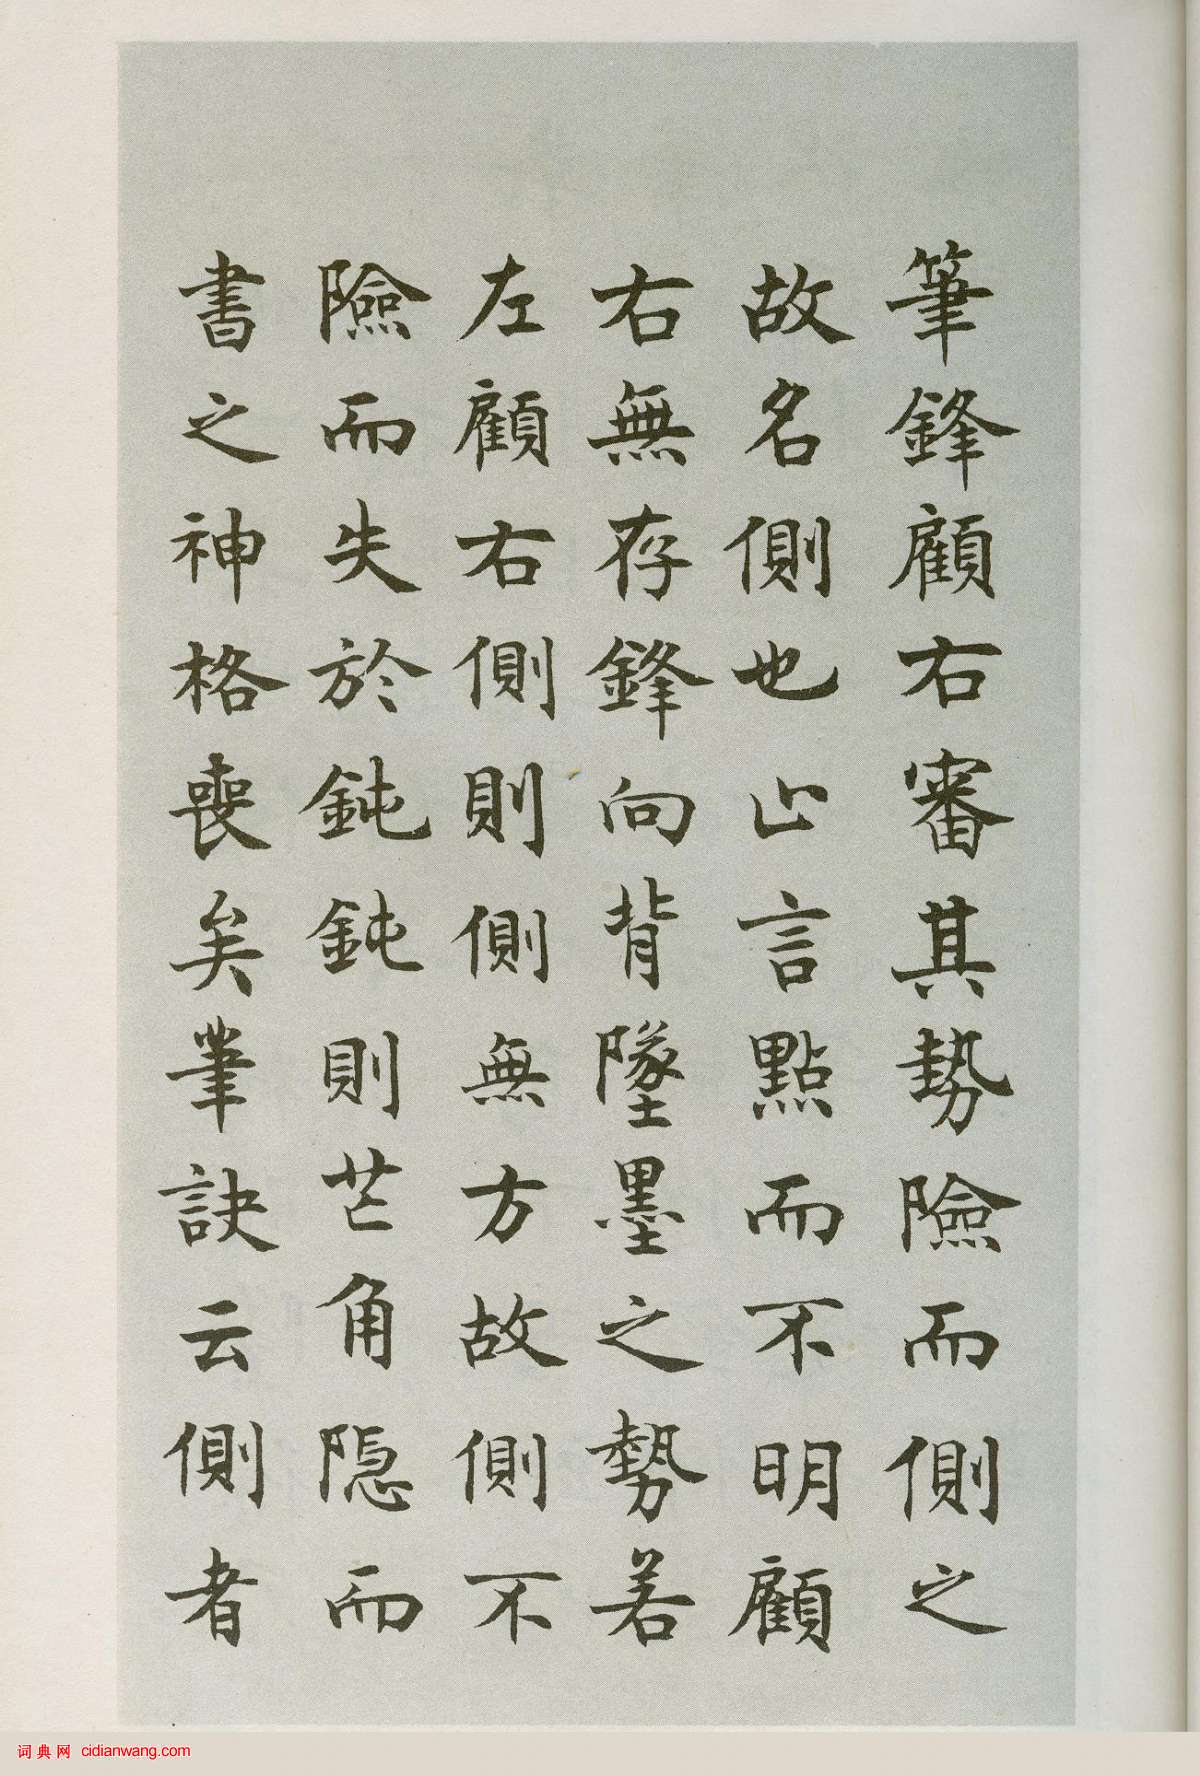 筆鋒顧右審其勢險而側之
故名側也止言點而不明顧
右無存鋒向背墜墨之勢若
左顧右側則側無方故側不
險而失於鈍鈍則芒角隱而
書之神格喪矣筆訣云側者
词典网 cidianwang.com